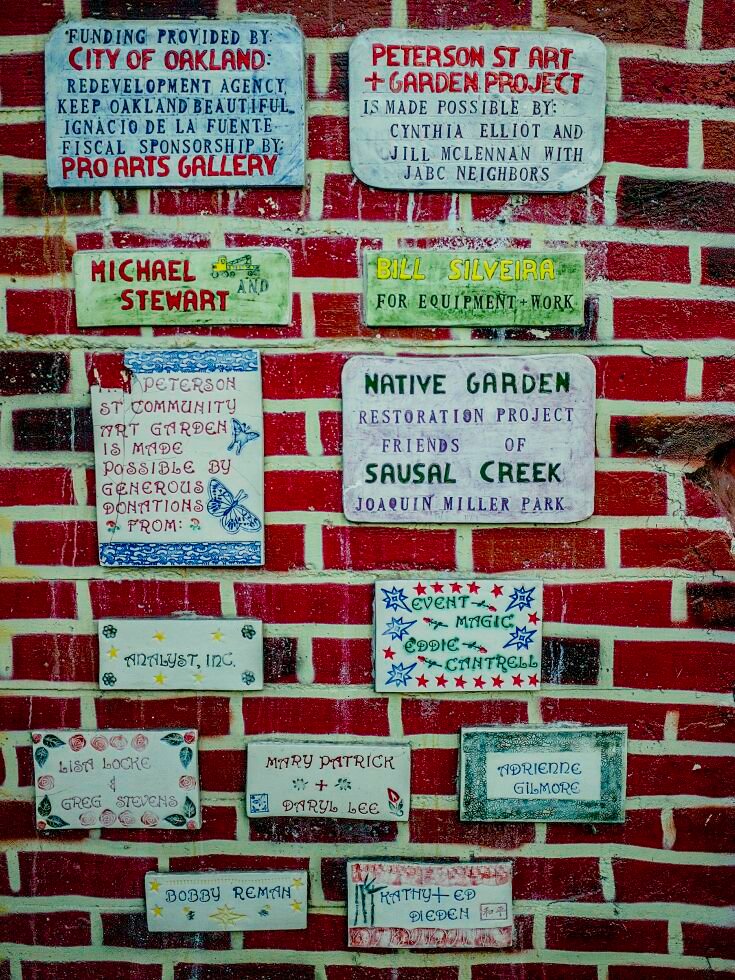 FUNDING PROVIDED BY:
CITY OF OAKLAND:
REDEVELOPMENT AGENCY,
KEEP OAKLAND BEAUTIFUL
IGNACIO DE LA FUENTE
FISCAL SPONSORSHIP BY:
PRO ARTS GALLERY
PETERSON ST ART
+ GARDEN PROJECT
IS MADE POSSIBLE BY:
CYNTHIA ELLIOT AND
JILL MCLENNAN WITH
JABC NEIGHBORS
MICHAEL
AND
STEWART
BILL SILVEIRA
FOR EQUIPMENT + WORK
PETERSON
ST COMMUNITY
ART GARDEN
IS MADE
POSSIBLE BY
GENEROUS
DONATIONS
FROM:
NATIVE GARDEN
RESTORATION PROJECT
FRIENDS OF
SAUSAL CREEK
JOAQUIN MILLER PARK
ANALYST, INC.
EVENT
MAGIC
EDDIE
CANTRELL
LISA LOCKE
&
GREG STEVENS
MARY PATRICK
+
DARYL LEE
ADRIENNE
GILMORE
BOBBY REMAN
KATHY + ED
DIEDEN
和平